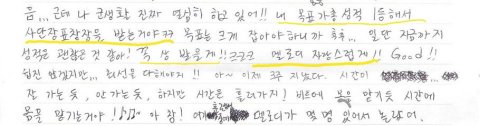 음... 근데 나 군생활 진짜 열심히 하고 있어!! 내 목표가 종합성적 1등해서
사단장표창장을 받는거야ㅋㅋ 목표는 크게 잡아야 하니까 후후... 일단 지금까지
성적은 괜찮은 것 같아! 꼭 상 받을게!! ㅋㅋㅋ 멜로디 자랑스럽게!! Good!!
쉽진 않겠지만... 최선을 다해야지!! 아~ 이제 3주 지났다. 시간이
잘 가는 듯, 안가는 듯, 하지만 시간은 흘러가지! 비트에 몸을 맡기듯 시간에
몸을 맡기는거야! ♪♫~ 아 참! 여기 훈련소에 멜로디가 몇 명 있어서 놀랐어.